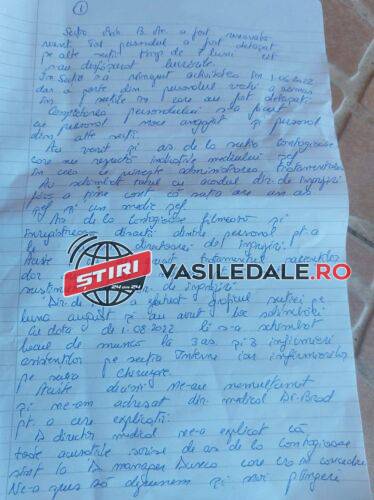 1
Secția Boli B. Inf. a fost renovată
recent. Tot personalul a fost detașat
pe alte secții timp de 7 luni cât
s-au desfășurat lucrările.
În Secție s-a reînceput activitatea în 1.06.2022
dar o parte din personalul vechi a rămas
în secțiile în care au fost detașați.
Completarea personalului s-a făcut
cu personal nou angajat și personal
din alte secții.
Au venit și as. de la secția contagioase
care nu respectă indicațiile medicului șef
în ceea ce privește administrarea tratamentelor
Au schimbat totul cu acordul Dir. de îngrijiri
fără a ține cont că secția are un as.
șef și un medic șef.
As. de la contagioase filmează și
înregistrează discuții dintre personal pt. a
le directoarei de îngrijiri.
tratamentul pacienților
dor
de îngrijiri
Dir. de graficul secției pe
luna august și au avut loc schimbări
Cu data de 1.08.2022 li s-a schimbat
locul de muncă la 3 as. și 3 infirmieri
asistenților pe secția Interne iar infirmierilor
pe secția Chirurgie.
Aceste decizii ne-au nemulțumit
și ne-am adresat dir. medical Dr. Brad
pt. a cere explicații.
D. director medical ne-a explicat că
toate acuzațiile scrise de as. de la contagioase
sunt la D. manager care
Ne-a spus să depunem și noi plângeri
STIRI
24 din 24
VASILEDALE.RO